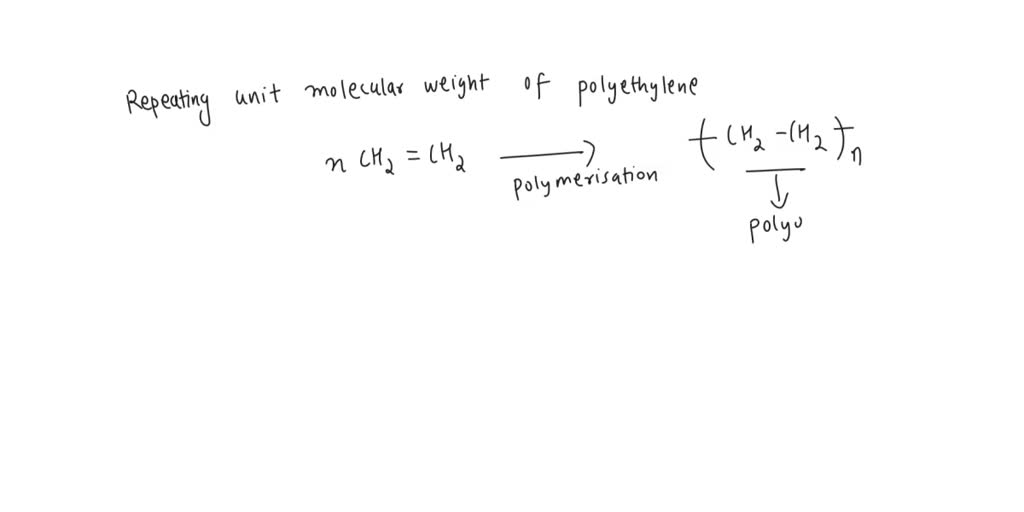 Repeating unit molecular weight of polyethylene
n CH₂ = CH₂ ⟶ polymerisation ( CH₂ - CH₂ )n
polyo